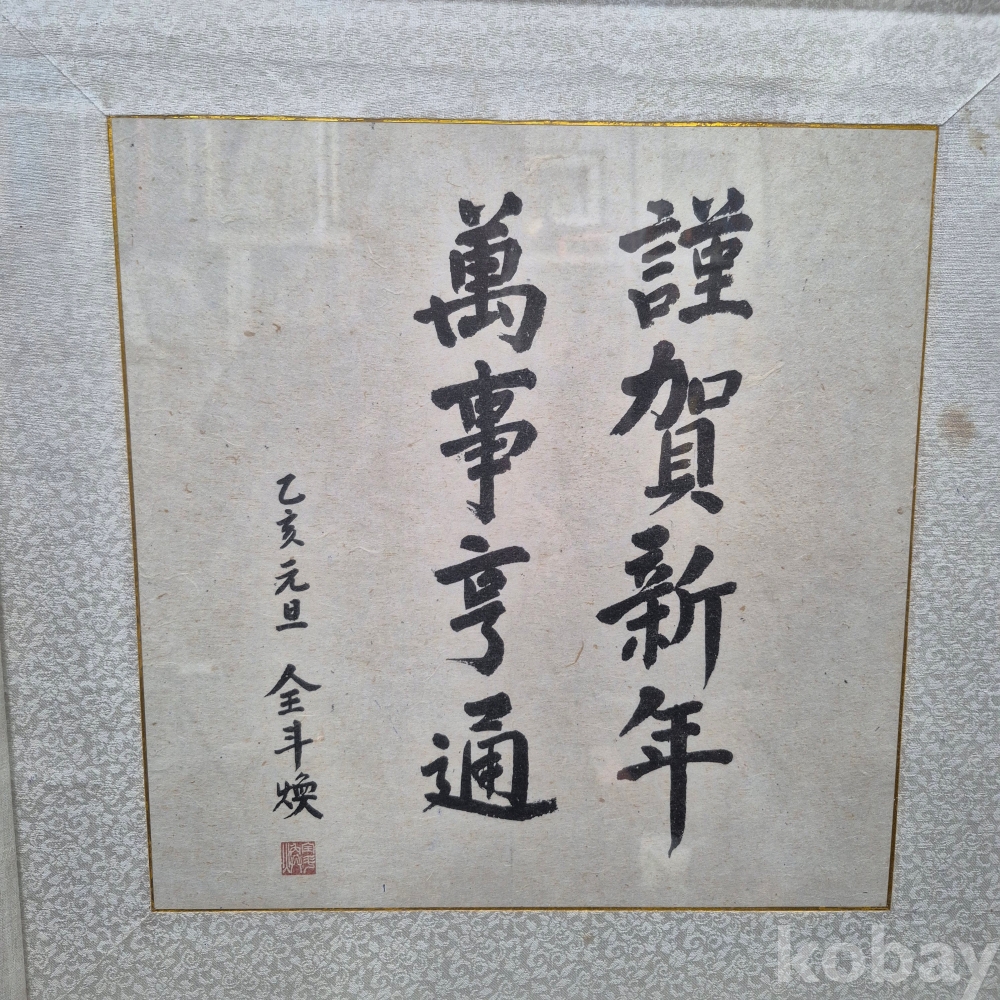 謹賀新年
萬事亨通
乙亥元旦 全斗煥
kobay